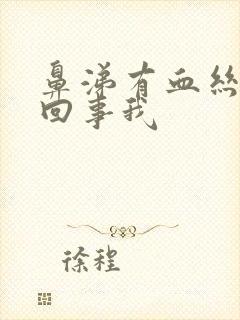 鼻涕有血絲
回事我
徐程